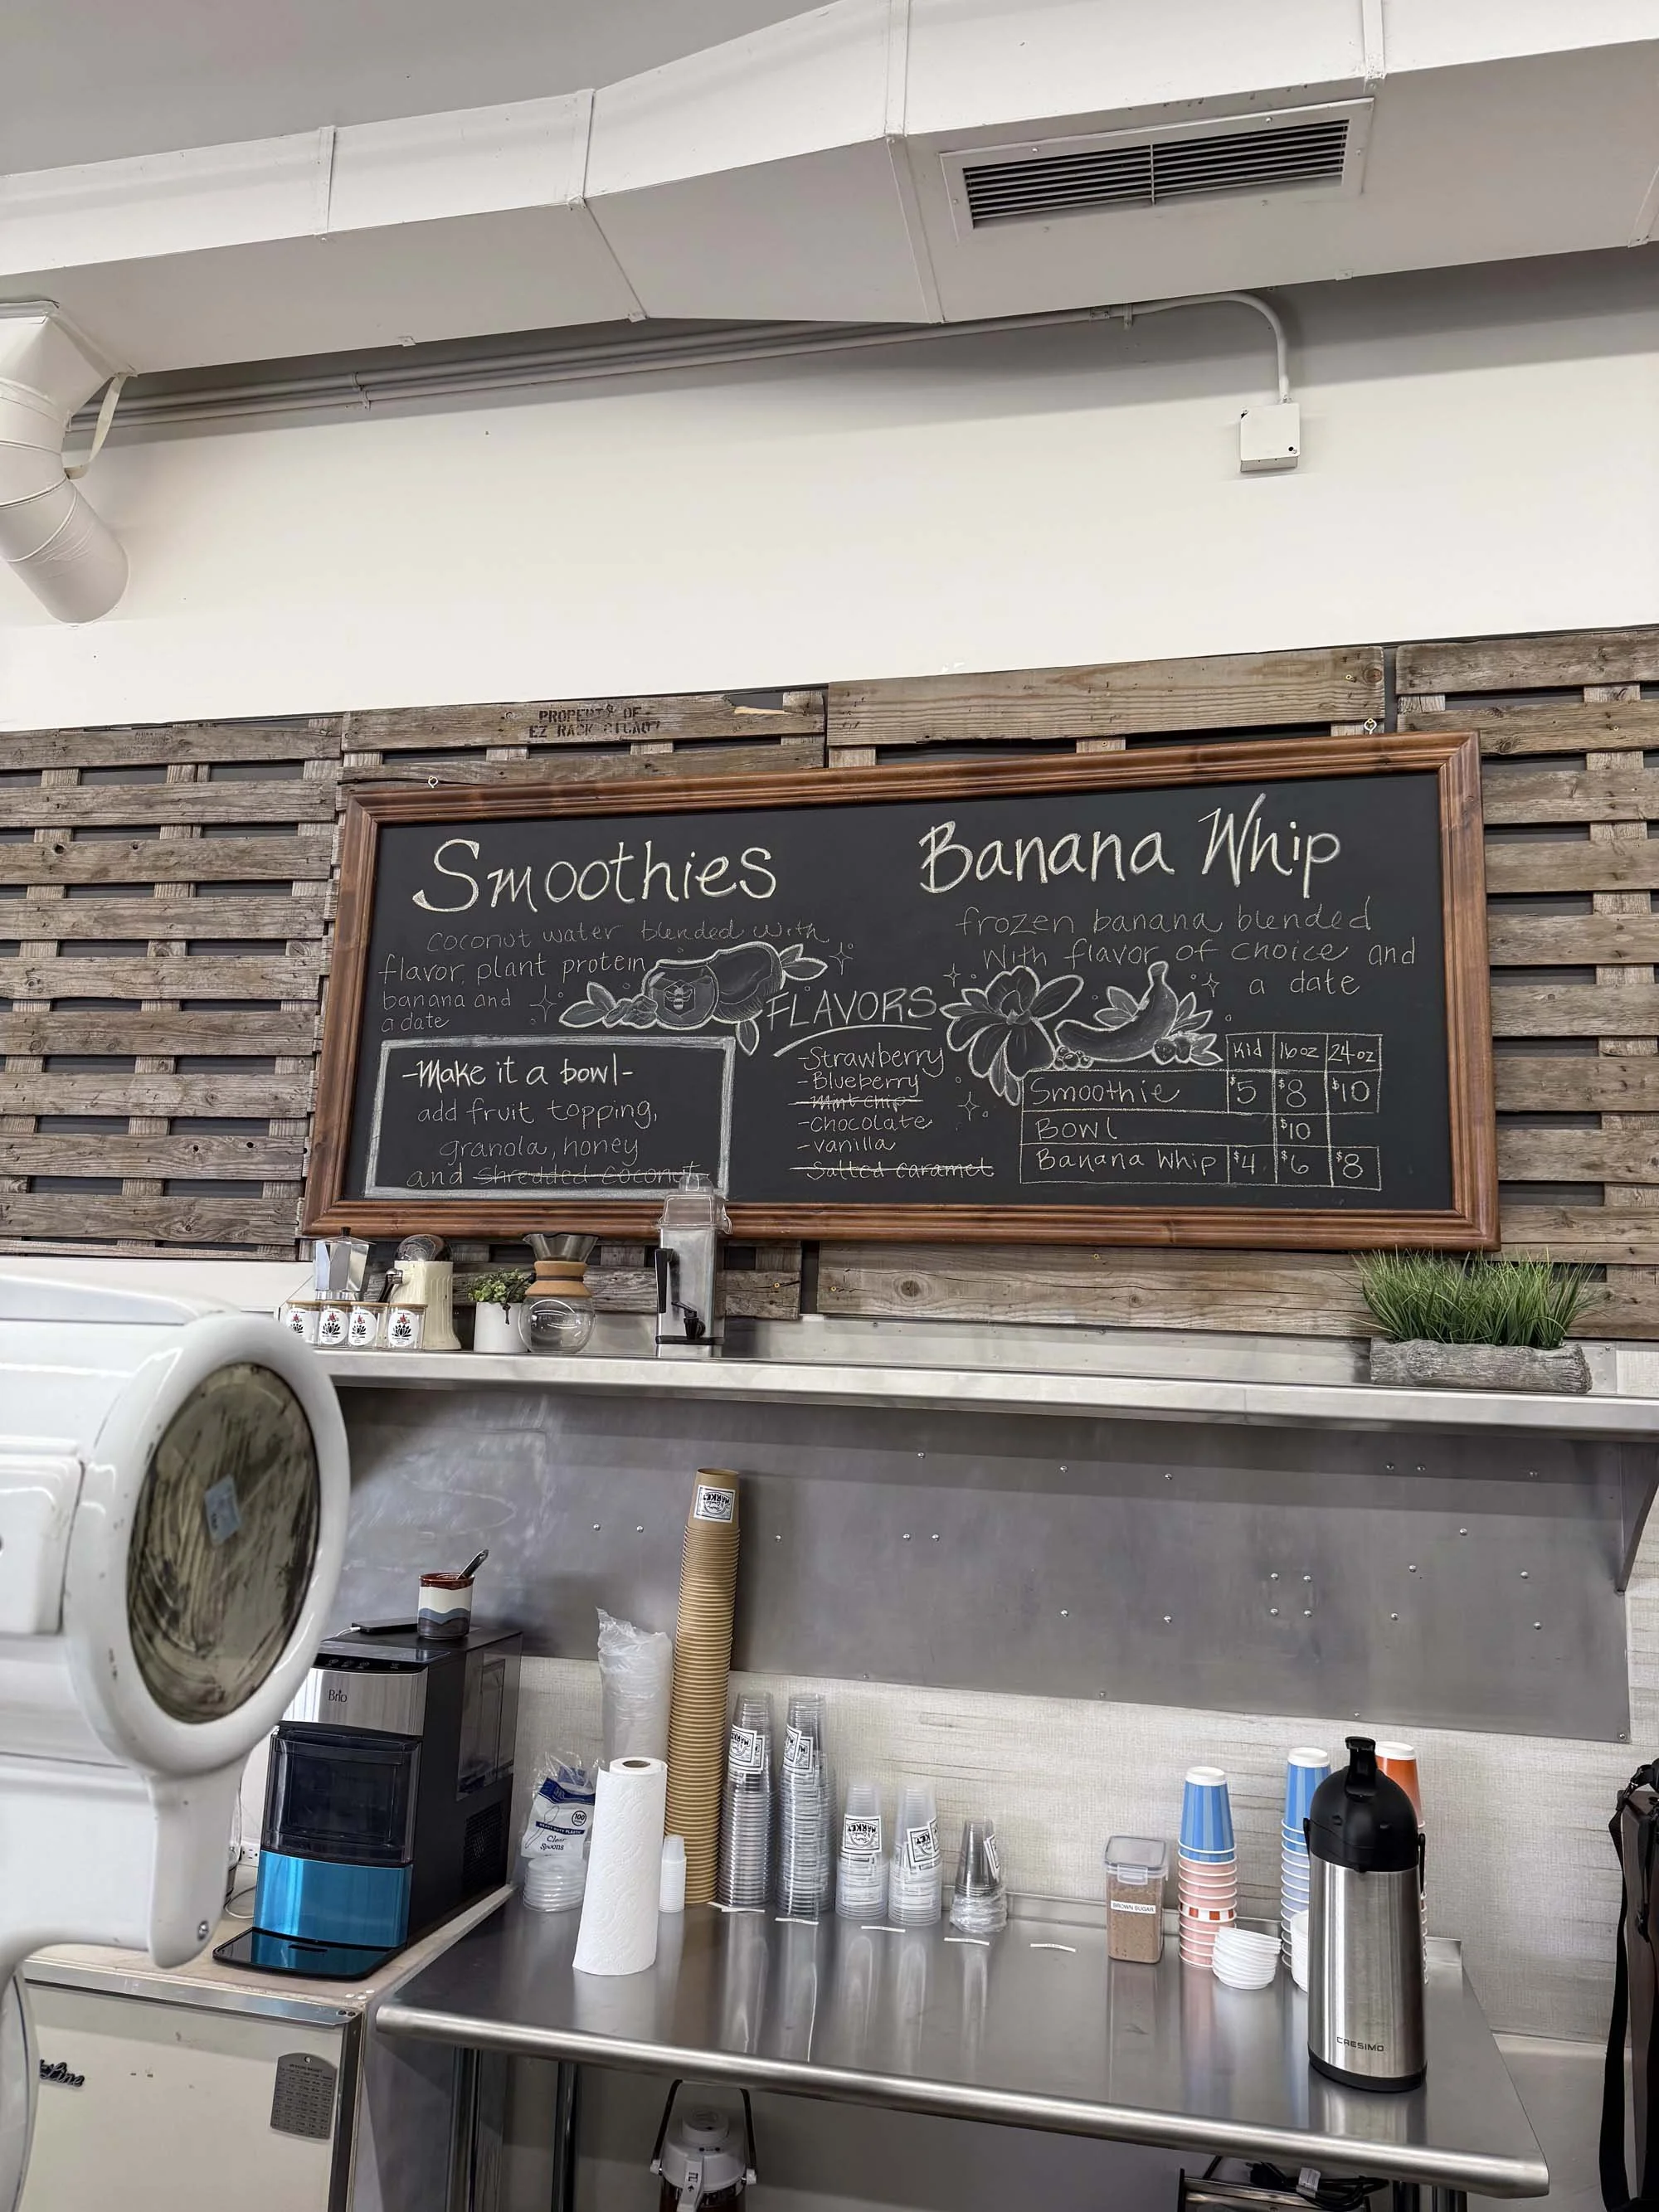 PROPERTY OF
EZ RACK
Smoothies
coconut water blended with
flavor, plant protein
banana and
a date
-Make it a bowl-
add fruit topping,
granola, honey
and shredded coconut
FLAVORS
-Strawberry
-Blueberry
-Mint chip
-Chocolate
-vanilla
-Salted caramel
Banana Whip
frozen banana blended
with flavor of choice and
a date
Kid 16oz 24oz
Smoothie $5 $8 $10
Bowl $10
Banana Whip $4 $6 $8
Brio
MARKET
MARKET
MARKET
MARKET
MARKET
100
Clear
Spoons
BROWN SUGAR
CRESIMO
Line